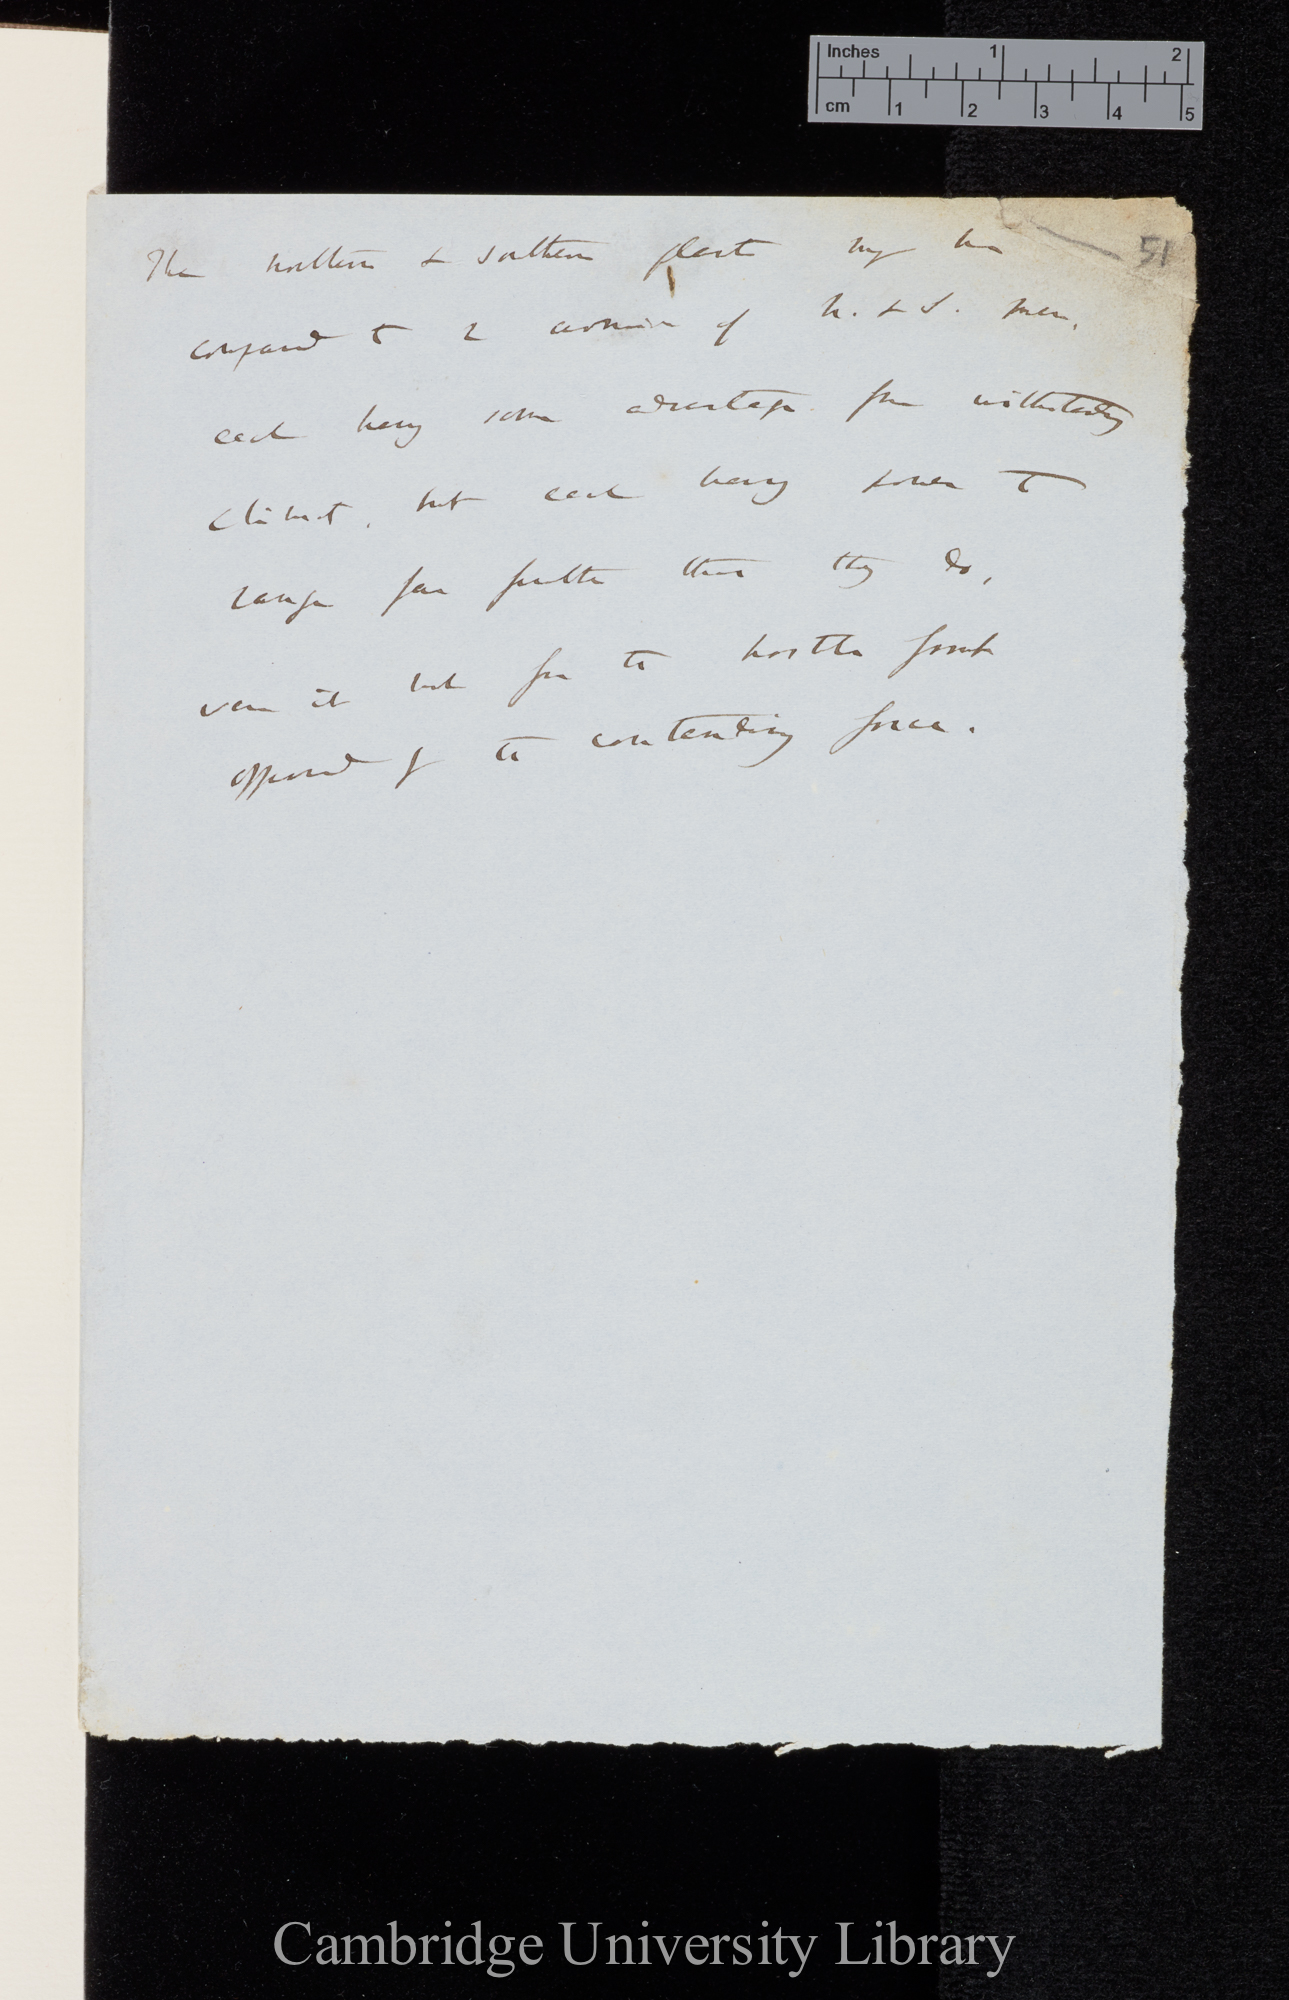 Inches 1 2
cm 1 2 3 4 5
51
The northern & southern plants may be
compared to 2 armies of N. & S. men,
each having some advantage from withstanding
climate, but each having power to
range far further than they do,
were it not for the hostile front
opposed by the contending force.
Cambridge University Library